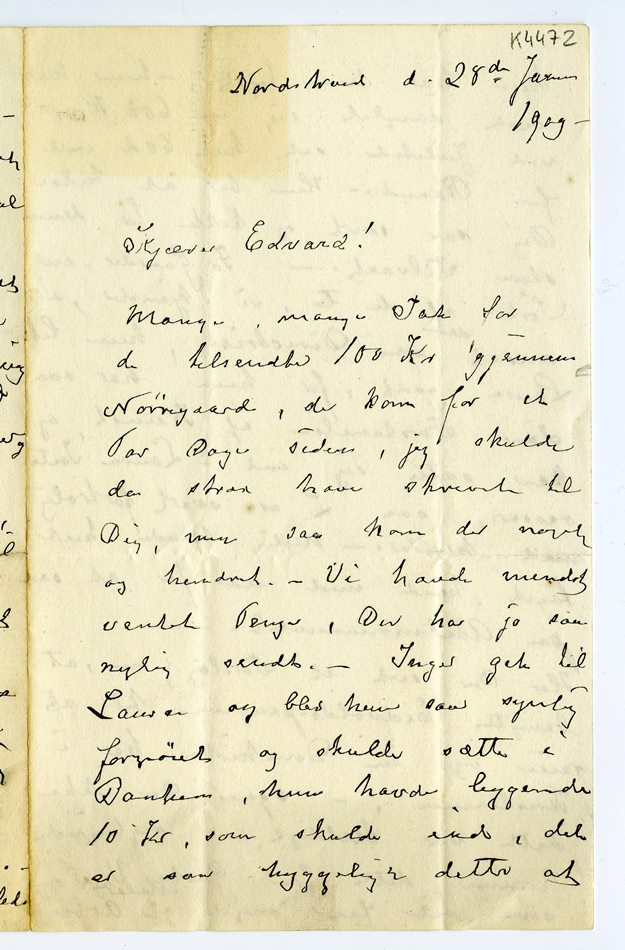 K4472
Nordstrand d. 28de Januar
1909 –
Kjære Edvard!
Mange, mange Tak for
de tilsendte 100 Kr gjennem
Nørregaard, de kom for et
Par Dage siden, jeg skulde
da strax have skrevet til
Dig, men saa kom der noget
og hendret. – Vi havde mendst
ventet Penge, Der har jo saa
nylig sendt. – Inger gik til
Laura og blev hun saa synlig
fornøiet og skulde sætte i
Banken, hun havde liggende
10 Kr, som skulde ind, det
er saa hyggeligt dette at